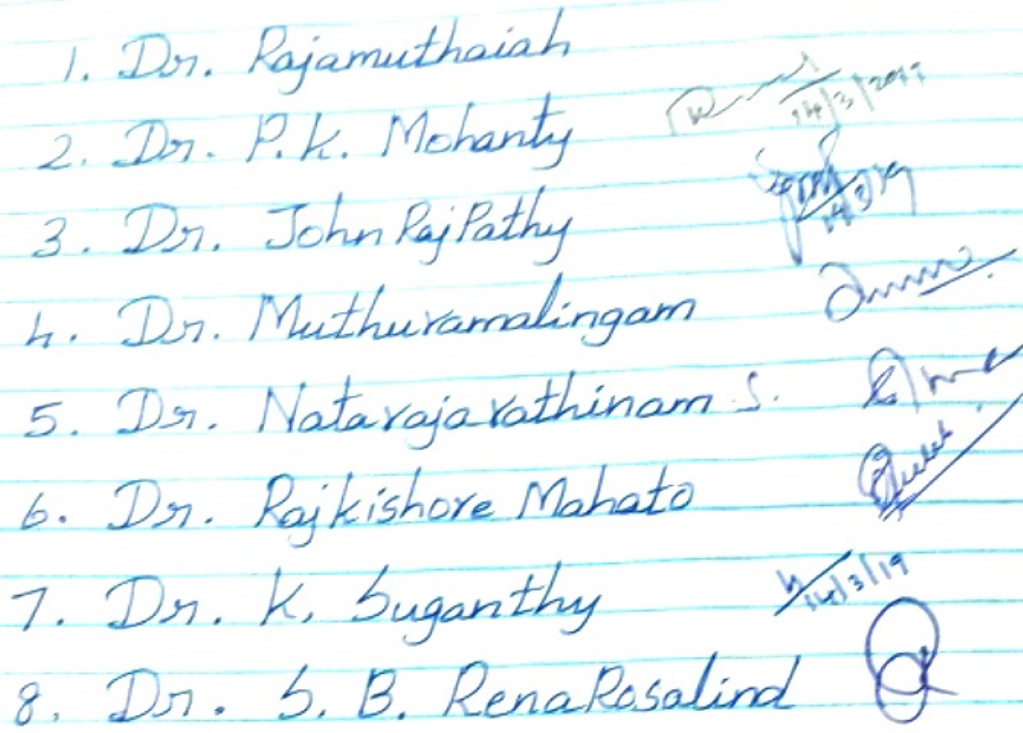 1. Dr. Rajamuthaiah
2. Dr. P.K. Mohanty 14/3/2019
3. Dr. John RajPathy 14/3/19
4. Dr. Muthuramalingam
5. Dr. Natarajarathinam S.
6. Dr. Rajkishore Mahato
7. Dr. K. Suganthy 14/3/19
8. Dr. S. B. RenaRosalind